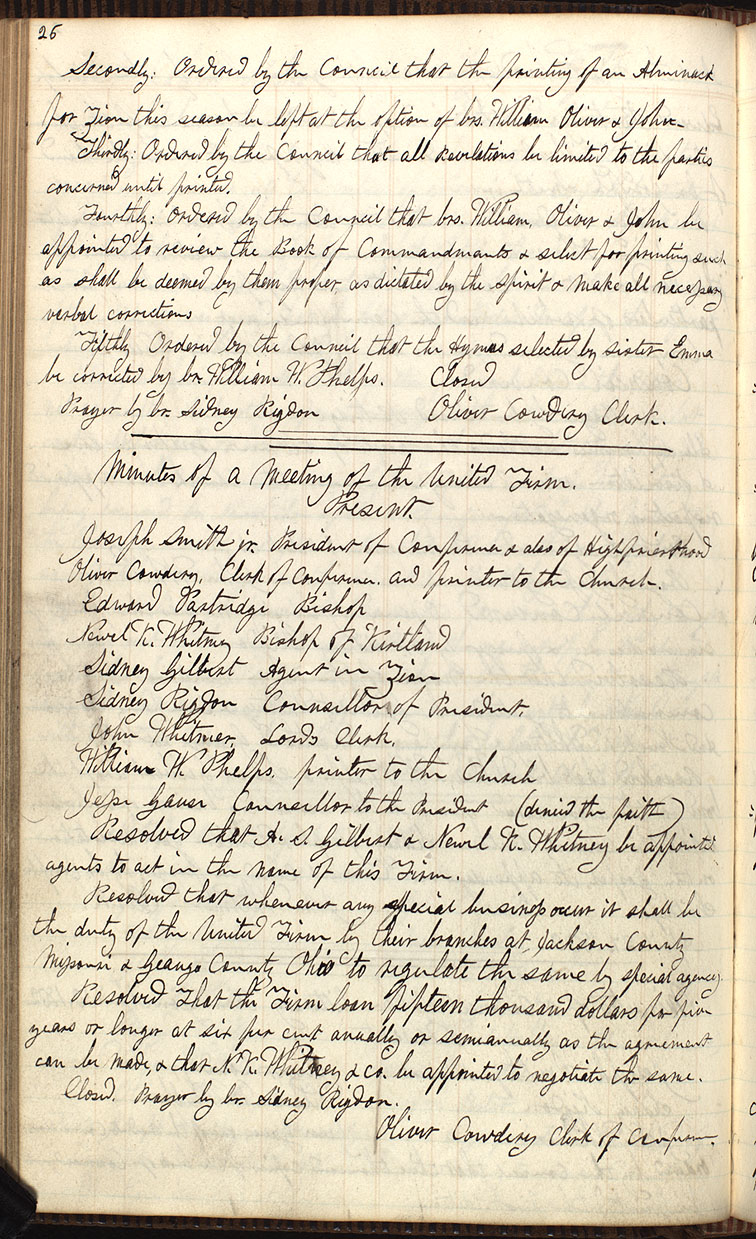 26
Secondly: Ordered by the Council that the printing of an Alminack
for Zion this season be left at the option of brs. William Oliver & John
Thirdly: Ordered by the Council that all Revelations be limited to the parties
concerned until printed.
Fourthly: Ordered by the Council that brs. William, Oliver & John be
appointed to review the Book of Commandments & select for printing such
as shall be deemed by them proper, as dictated by the spirit & make all necessary
verbal corrections
Fifthly Ordered by the Council that the Hymns selected by sister Emma
be corrected by br. William W. Phelps. Closed
Prayer by br. Sidney Rigdon Oliver Cowdery Clerk.
Minutes of a Meeting of the United Firm.
Present.
Joseph Smith jr. President of Conference & also of Highpriesthood
Oliver Cowdery, Clerk of Conference. and printer to the Church.
Edward Partridge Bishop
Newel K. Whitney Bishop of Kirtland
Sidney Gilbert Agent in Zion
Sidney Rigdon Counsellor of President.
John Whitmer, Lords Clerk.
William W. Phelps, printer to the Church
Jesse Gause Counsellor to the President (denied the faith)
Resolved that A. S. Gilbert & Newel K. Whitney be appointed
agents to act in the name of this Firm.
Resolved that whenever any special business occur it shall be
the duty of the United Firm by their branches at Jackson County
Missouri & Geauga County Ohio to regulate the same by special agency.
Resolved That the Firm loan fifteen thousand dollars for five
years or longer at six per cent anually or semianually as the agreement
can be made, & that N. K. Whitney & co. be appointed to negotiate the same.
Closed. Prayer by br. Sidney Rigdon.
Oliver Cowdery Clerk of Conferen.